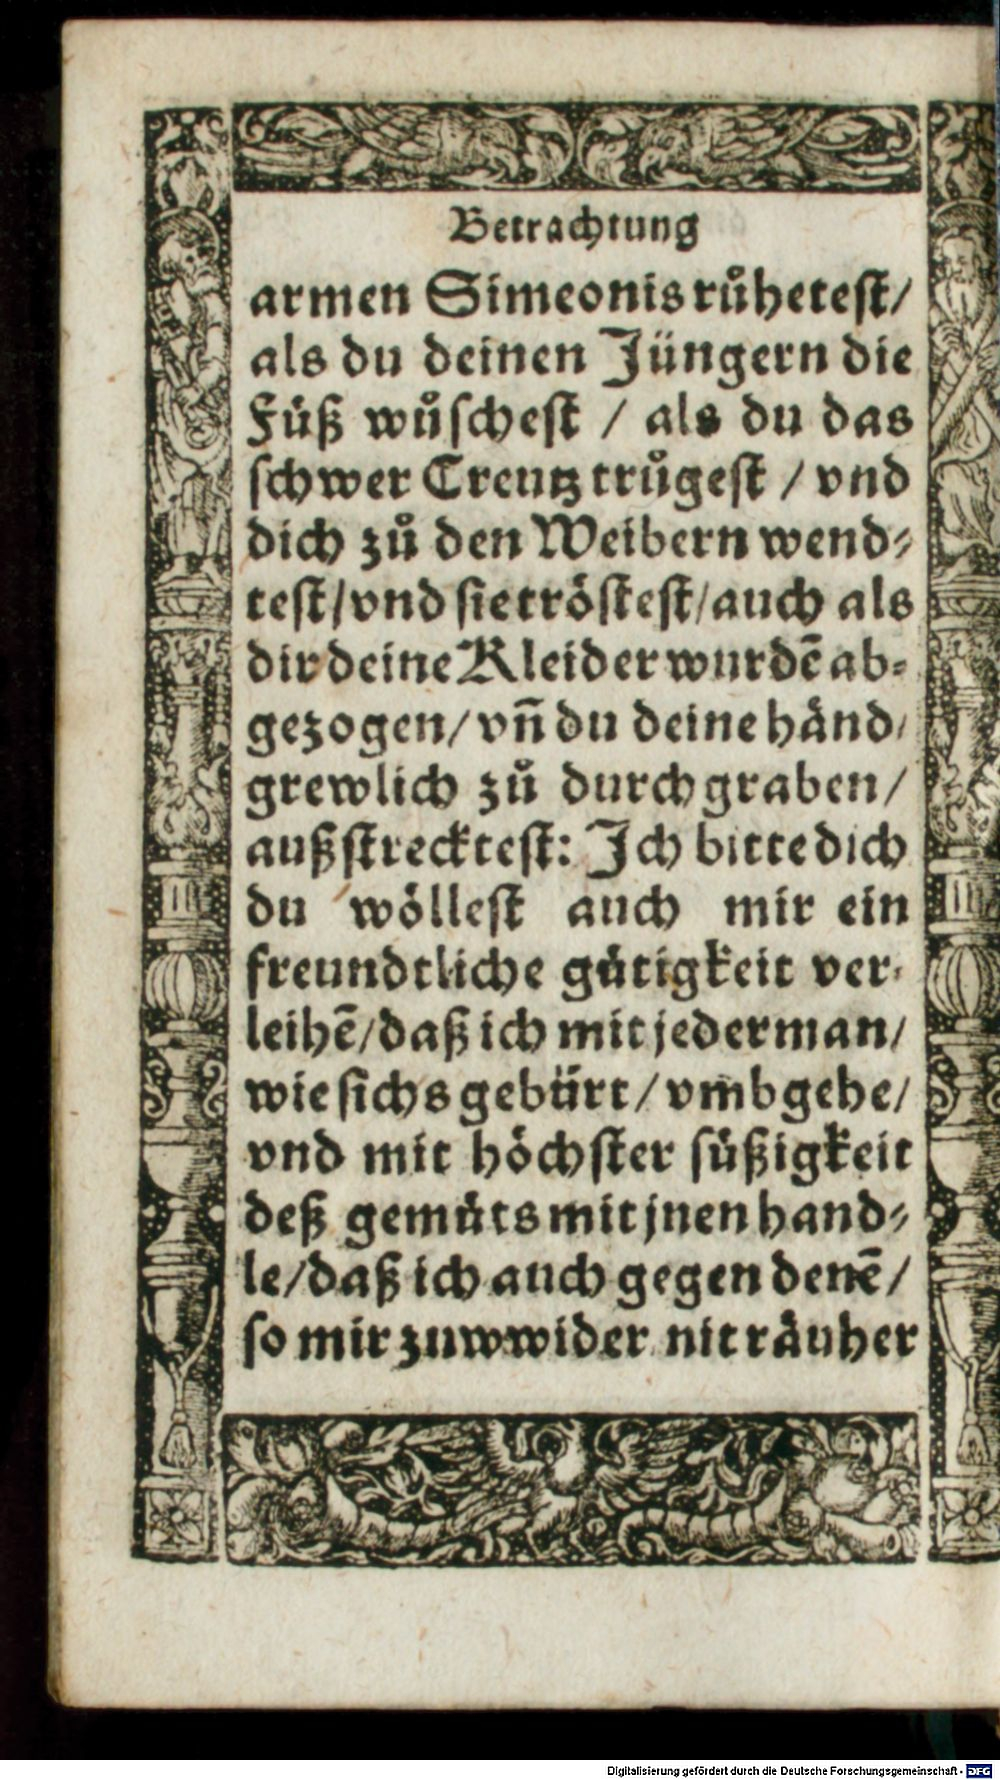 Betrachtung
armen Simeonis růhetest/
als du deinen Jüngern die
Füß wůschest / als du das
schwer Creutz trůgest / vnd
dich zů den Weibern wend⸗
test/vnd sie tröstest/auch als
dir deine Kleider wurdē ab⸗
gezogen/vn̄ du deine händ/
grewlich zů durchgraben/
außstrecktest: Ich bitte dich
du wöllest auch mir ein
freundtliche gütigkeit ver⸗
leihē/daß ich mit jederman/
wie sichs gebürt/vmb gehe/
vnd mit höchster süßigkeit
deß gemüts mit jnen hand⸗
le/daß ich auch gegen denē/
so mir zuwwider nit räuher
Digitalisierung gefördert durch die Deutsche Forschungsgemeinschaft - DFG